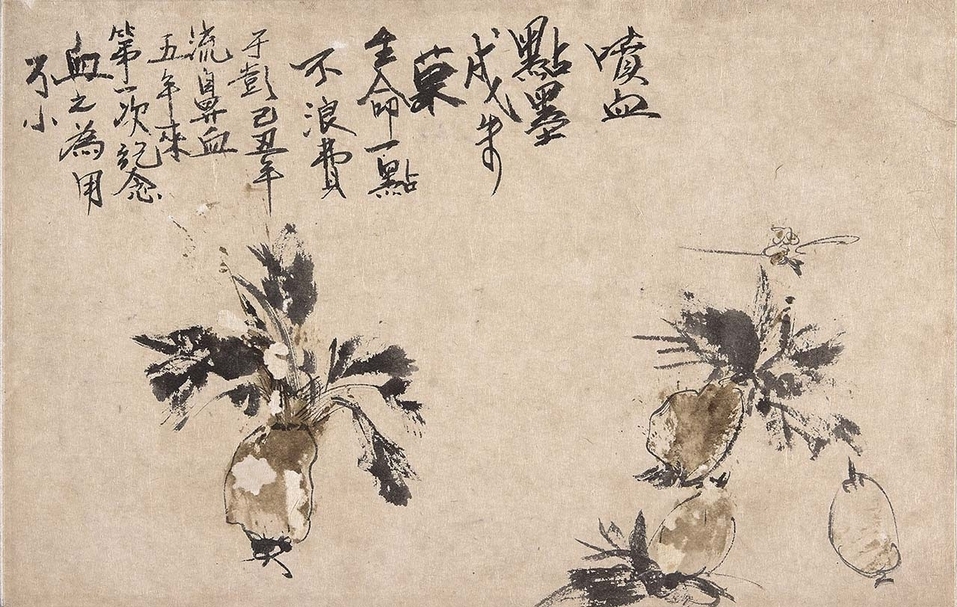 噴血
點墨
成朱
菓
生命一點
不浪費
于彭己丑年
流鼻血
五年來
第一次記念
血之為用
不小